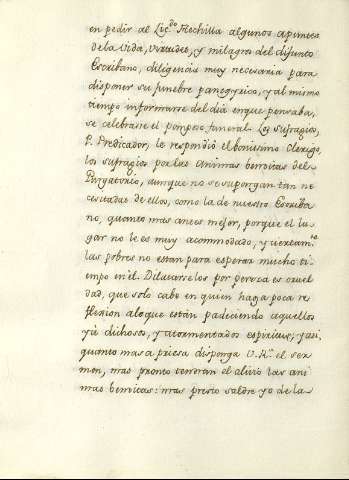 en pedir al Lic.do Flechilla algunos apuntes
de la Vida, virtudes, y milagros del difunto
Escribano, diligencia muy necesaria para
disponer su funebre panegyrico, y al mismo
tiempo informarse del dia enque pensaba,
se celebrasse el pomposo funeral. Los sufragios,
P. Predicador, le respondió el bonissimo Clerigo,
los sufragios por las Animas benditas del
Purgatorio, aunque no se supongan tan ne
cesitadas de ellos, como la de nuestro Escriba
no, quanto mas antes mejor, porque el lu
gar no les es muy acommodado, y ciertam.te
las pobres no estan para esperar mucho ti
empo en él. Dilatarselos por pereza es cruel
dad, que solo cabe en quien haga poca re
flexion aloque están padeciendo aquellos
yá dichosos, y atormentados espiritus; y assi
quanto mas apriesa disponga V. R.ma el ser
mon, mas pronto tendrán el alivio las ani
mas benditas: mas presto saldre yo de la